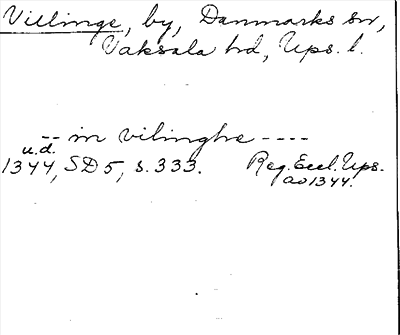 Villinge, by, Danmarks sn,
Vaksala hd, Ups. l.
-- in vilinghe ----
u.d.
1344, SD 5, s. 333. Reg. Eccl. Ups.
ao 1344.